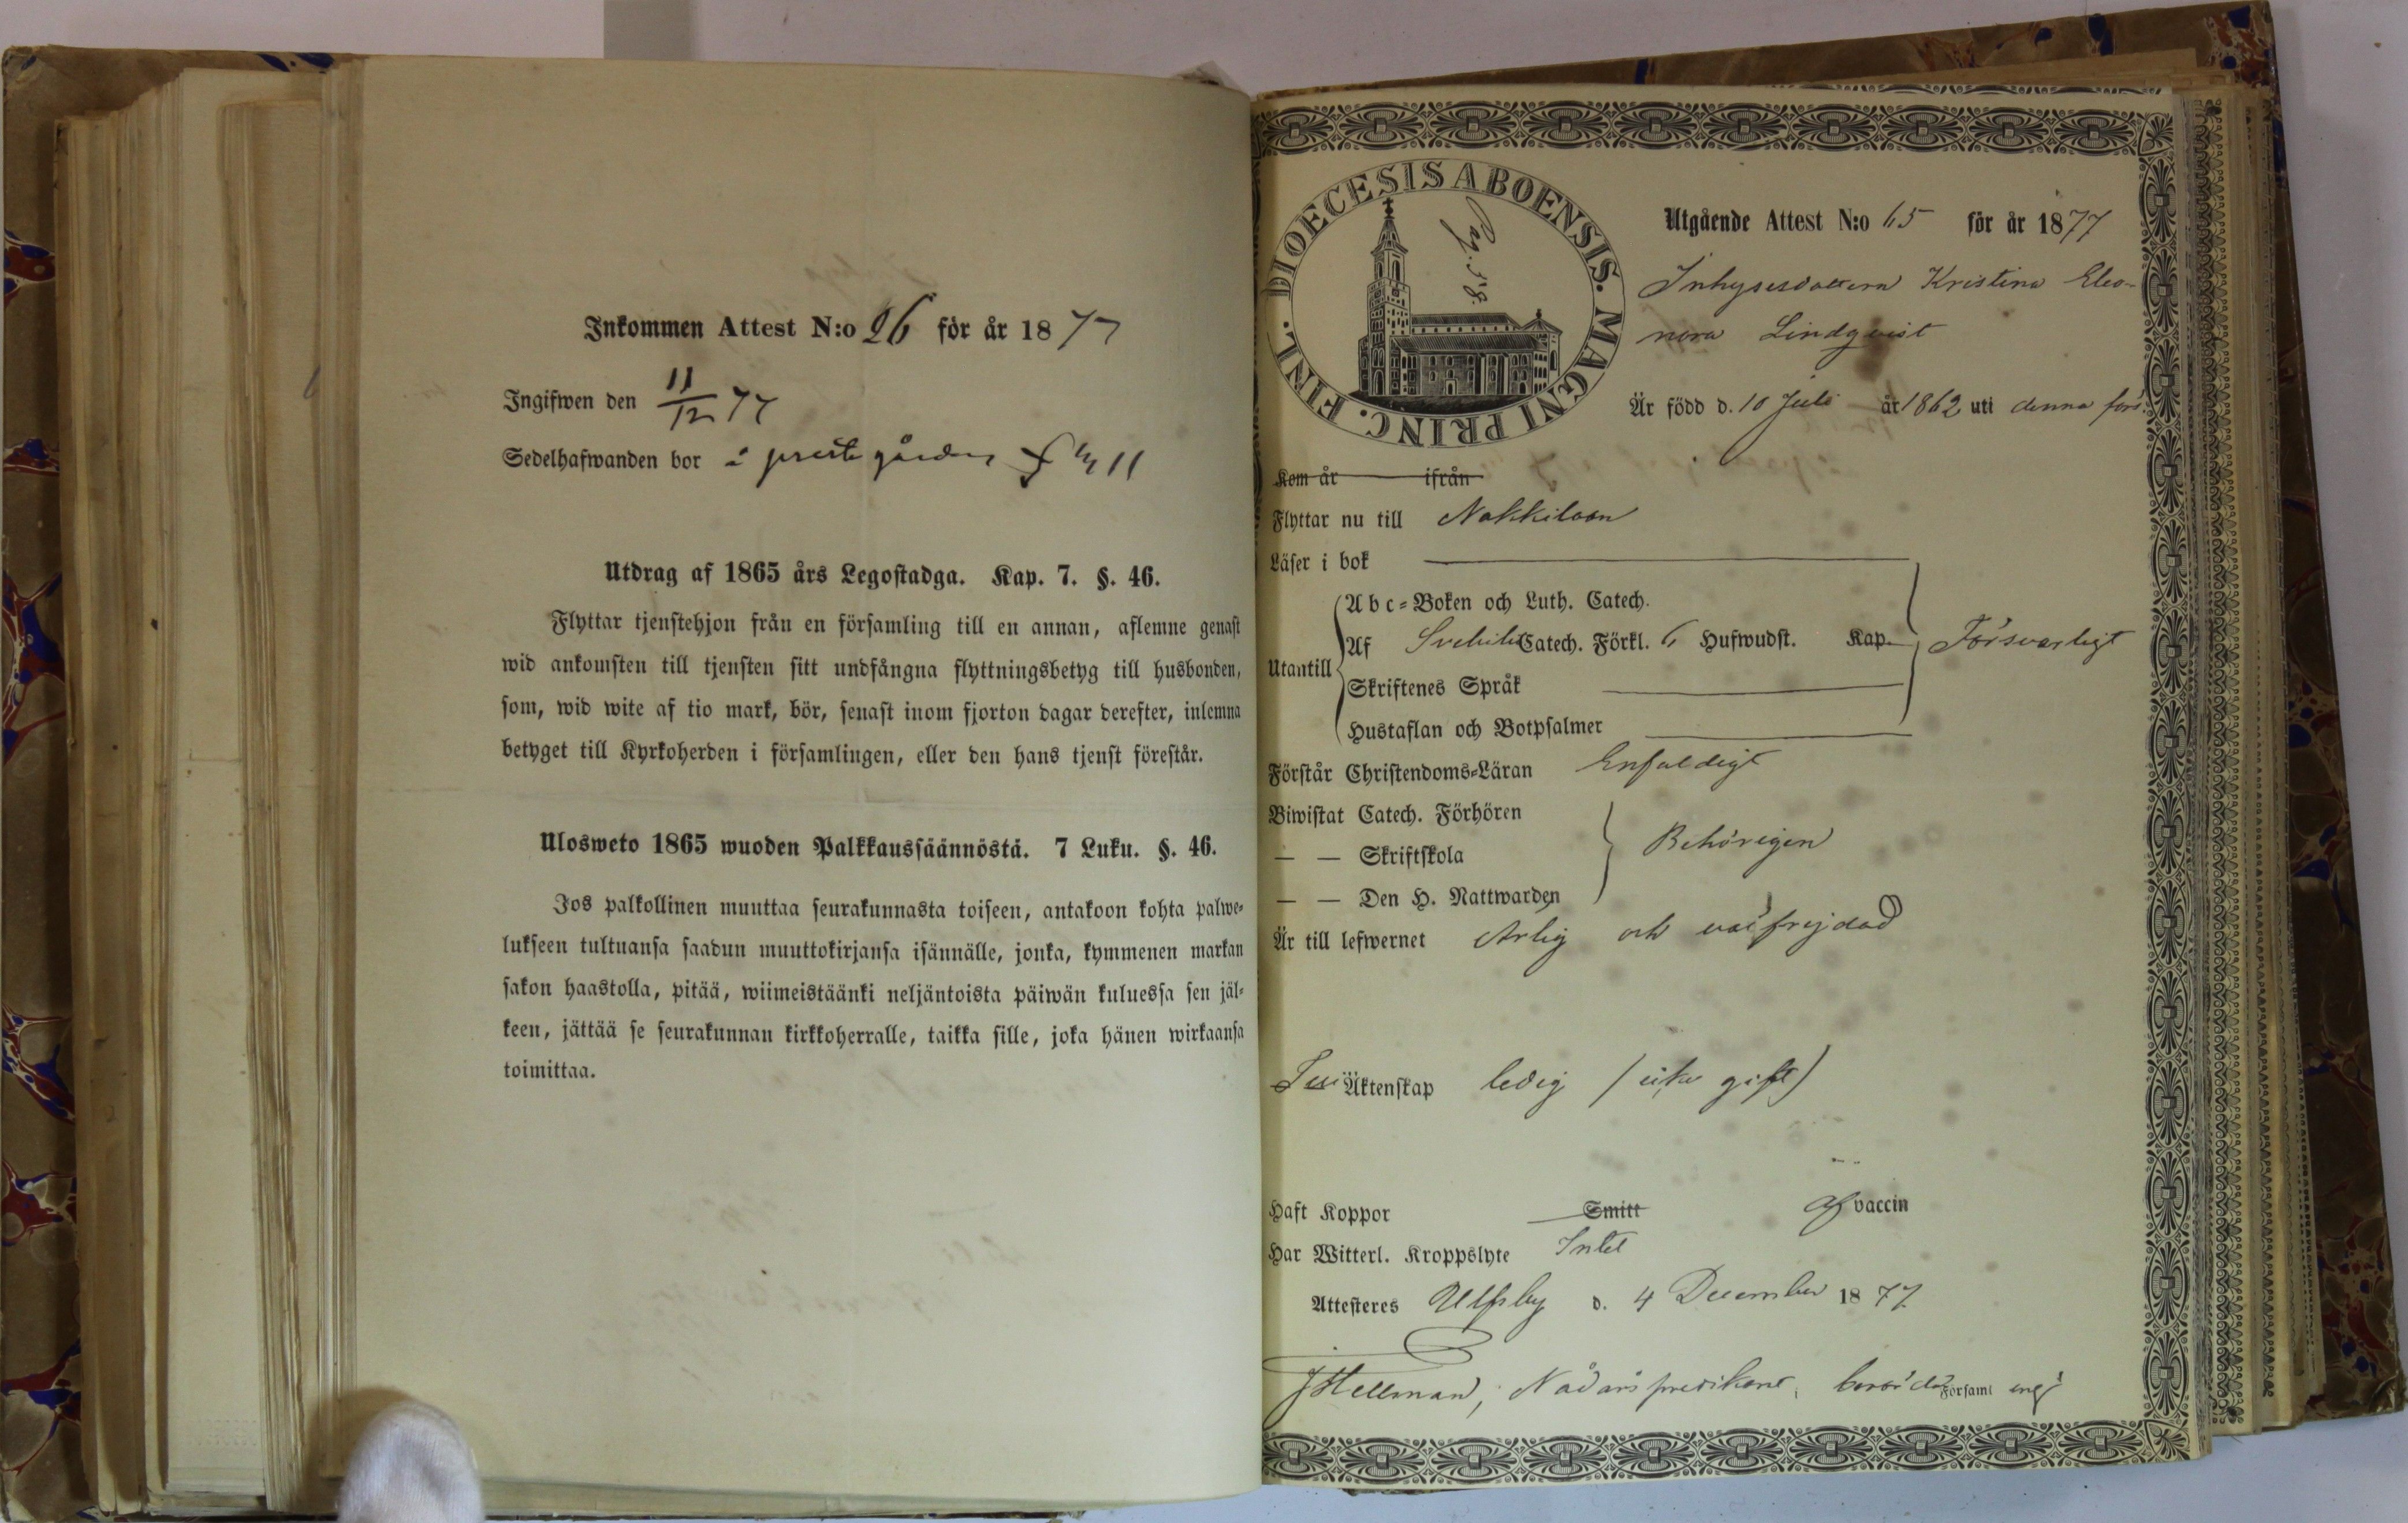 Inkommen Attest N:o 26 för år 1877
Ingifwen den 11/12 77
Sedelhafwanden bor i prestgården
Utdrag af 1865 års Legostadga. Kap. 7. §. 46.
Flyttar tjenstehjon från en församling till en annan, aflemne genast
wid ankomsten till tjensten sitt undfångna flyttningsbetyg till husbonden,
som, wid wite af tio mark, bör, senast inom fjorton dagar derefter, inlemna
betyget till Kyrkoherden i församlingen, eller den hans tjenst förestår.
Ulosweto 1865 wuoden Palkkaussäännöstä. 7 Luku. §. 46.
Jos palkollinen muuttaa seurakunnasta toiseen, antakoon kohta palwe-
lukseen tultuansa saadun muuttokirjansa isännälle, jonka, kymmenen markan
sakon haastolla, pitää, wiimeistäänki neljäntoista päiwän kuluessa sen jäl-
keen, jättää se seurakunnan kirkkoherralle, taikka sille, joka hänen wirkaansa
toimittaa.
DIOECESIS ABOENSIS. MAGNI PRINC. FINL.
Pag. 58.
Utgående Attest N:o 65 för år 1877
Inhysesdottern Kristina Eleo-
nora Lindqvist
Är född d. 10 Juli år 1862 uti denna förs.
Kom år ifrån
Flyttar nu till Nakkilaan
Läser i bok
Utantill
Abc-Boken och Luth. Catech.
Af Svebilii Catech. Förkl. 6 Hufwudst. Kap. Försvarligt
Skriftenes Språk
Hustaflan och Botpsalmer
Förstår Christendoms-Läran Enfaldigt
Biwistat Catech. Förhören
— — Skriftskola Behörigen
— — Den H. Nattwarden
Är till lefwernet Ärlig och välfrejdad
Till Äktenskap ledig (icke gift)
Haft Koppor Smitt af vaccin
Har Witterl. Kroppslyte Intet
Attesteres Ulfsby d. 4 December 1877
J Hellman, Nådårspredikant, Församl